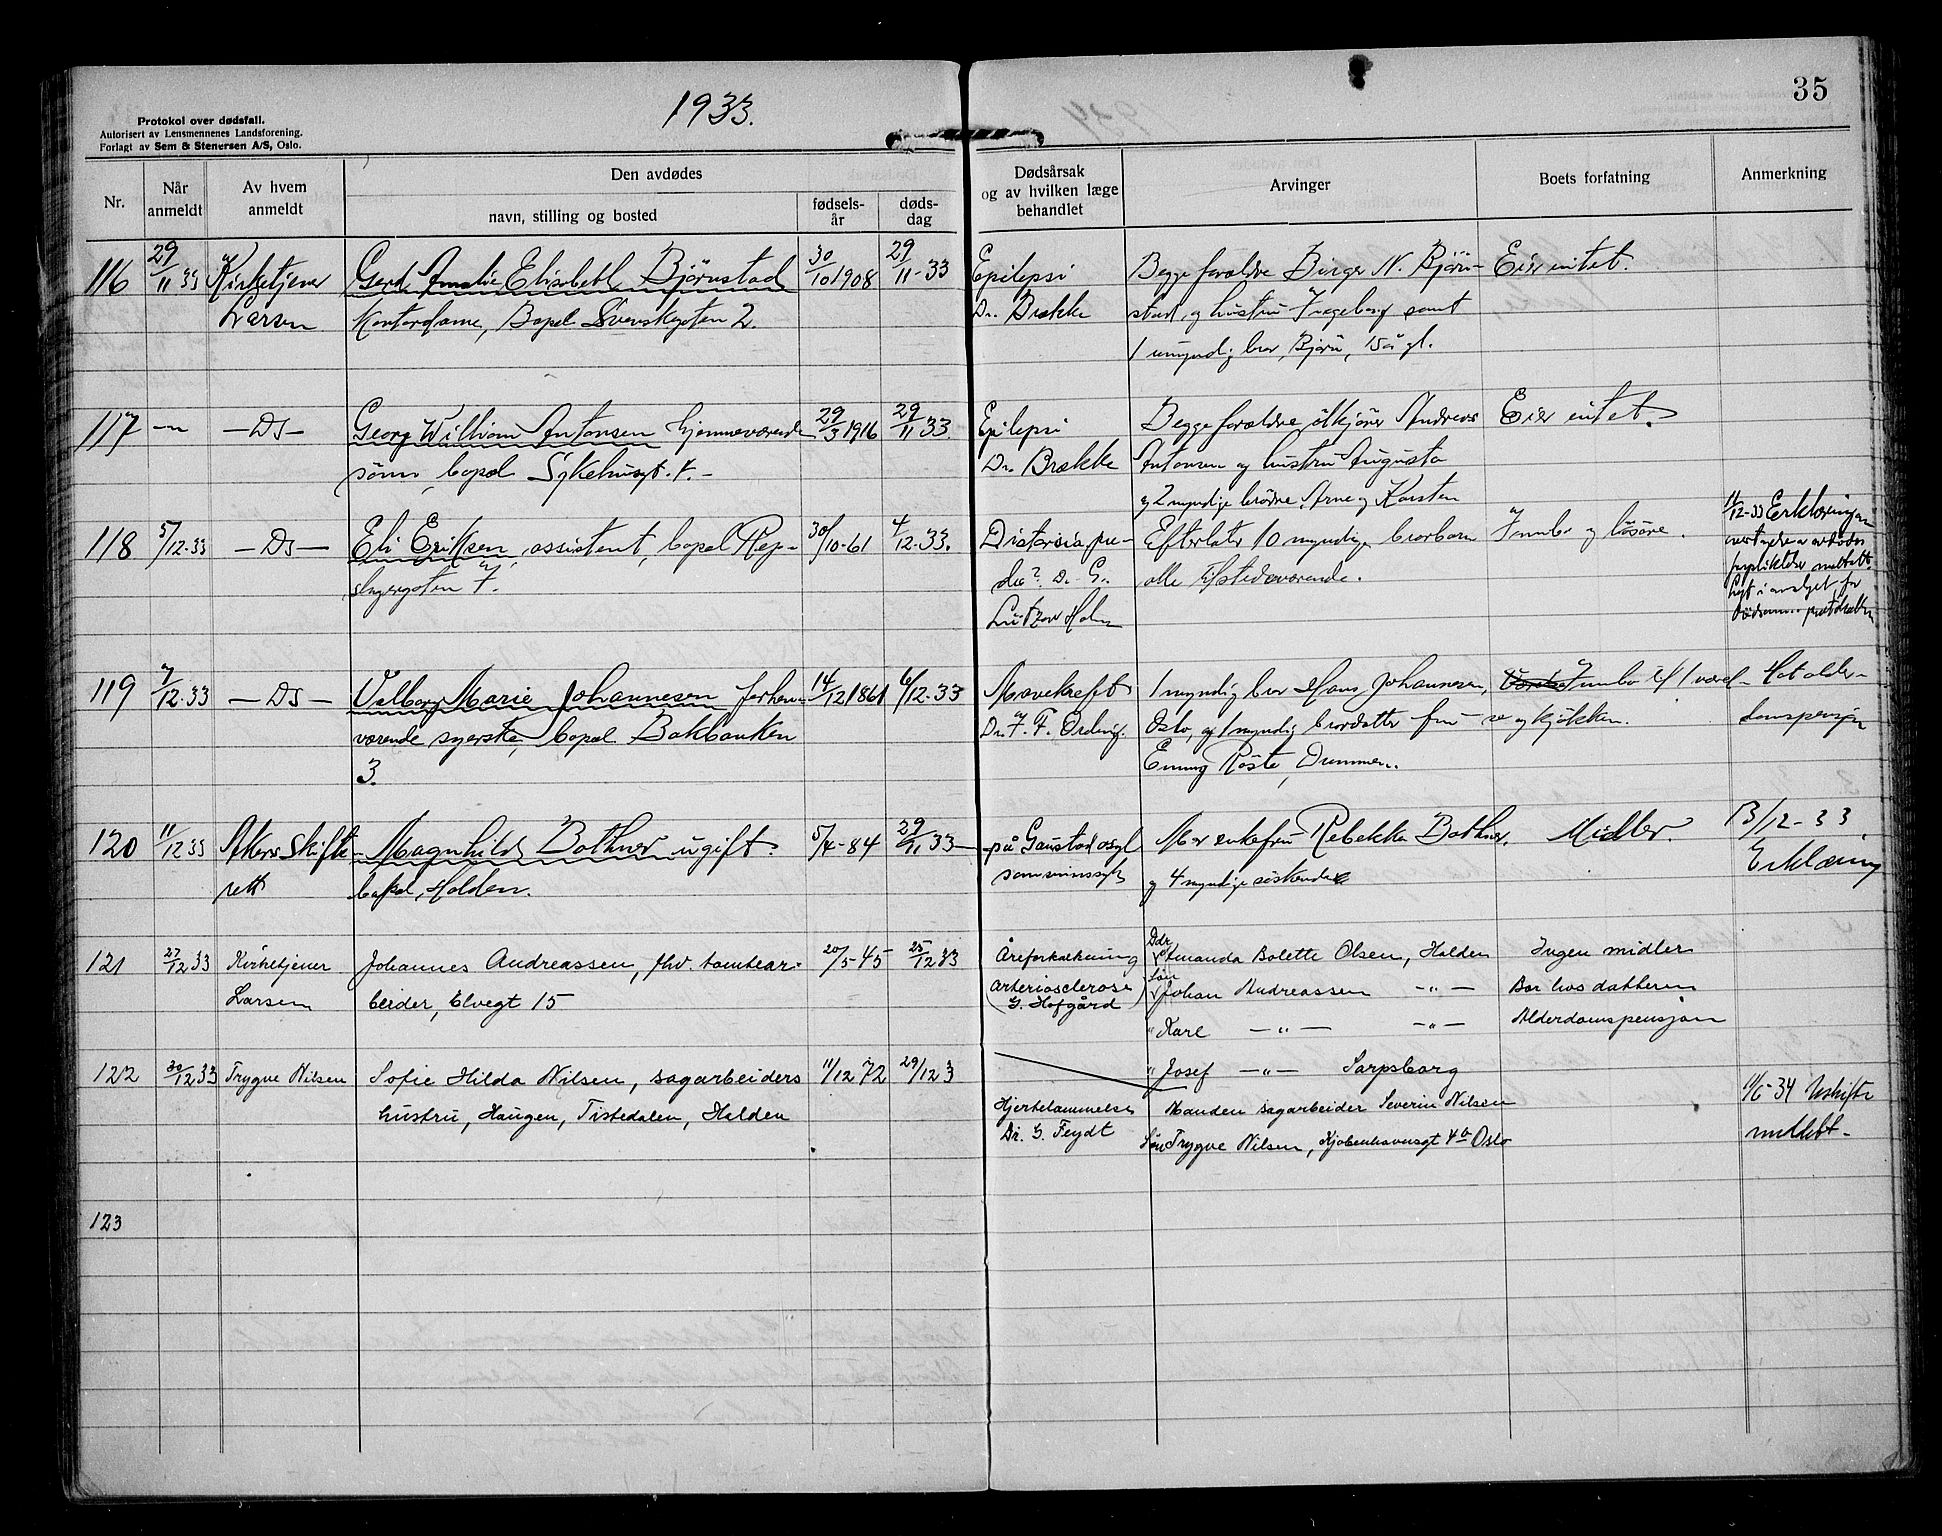 1933.
35
Protokol over dødsfall.
Autorisert av Lensmennenes Landsforening.
Forlagt av Sem & Stenersen A/S, Oslo.
Nr.
Når anmeldt
Av hvem anmeldt
Den avdødes
navn, stilling og bosted
fødsels-år
døds-dag
Dødsårsak og av hvilken læge behandlet
Arvinger
Boets forfatning
Anmerkning
116 29/11 33 Kirketjener Gerd Amalie Elisabeth Bjørnstad 30/10 1908 29/11-33 Epilepsi Begge forældre Birger N. Bjørn- Eier intet.
Larsen Kontordame, Bopel Svenskegaten 2. Dr. Brække stad og hustru Ingeborg samt
1 umyndig bror, Bjørn, 15 år gl.
117 -"- -Ds- Georg William Antonsen hjemmeværende 29/3 1916 29/11-33. Epilepsi Begge forældre ølkjører Andreas Eier intet.
sønn, bopel Sykehusgt. 7.- Dr. Brække Antonsen og hustru Augusta
og 2 myndige brødre Arne og Karsten
118 5/12-33 -Ds- Eli Eriksen, assistent, bopel Rep- 30/10-61 4/12-33. Efterlater 10 myndige brorbarn Innbo og løsøre. 11/12-33 Erklæringen
slagergaten 7. Dr. G. alle tilstedeværende.
Lützow Holm
119 7/12-33 -Ds- Valborg Marie Johannesen forhen- 14/12 1861 6/12-33 Mavekreft 1 myndig bror Hans Johannesen, Innbo til 1 værel- Hat alder-
værende syerske, bopel Bakbanken Dr. F. F. Ording. Oslo, og 1 myndig brordatter fru se og kjøkken. domspensjon
3. Emmy Røste, Drammen.
120 11/12 33 Akers Skifte- Magnhild Bothner ugift. 5/4-84 29/11 33 på Gaustad asyl Mor enkefru Rebekka Bothner. Midler. 13/12-33.
rett bopel, Halden. som sinnssyk og 4 myndige søskende Erklæring
121 27/12 33 Kirketjener Johannes Andreassen, fhv. tomtear- 20/5-45 25/12 33 Åreforkalkning Ddr. Amanda Bolette Olsen, Halden Ingen midler
Larsen beider, Elvegt 15 (arteriosclerose) Søn Johan Andreassen -"- Bor hos datteren
G. Hofgård " Karl -"- -"- Alderdomspensjon
" Josef -"- Sarpsborg
122 30/12 33 Trygve Nilsen Sofie Hilda Nilsen, sagarbeiders 11/12 72 29/12 3
hustru, Haugen, Tistedalen, Halden Hjertelammelse Manden sagarbeider Severin Nilsen 11/6-34 Uskifte
Dr. G. Feydt Søn Trygve Nilsen, Kjøbenhavnsgt 4b Oslo meddelt-
123